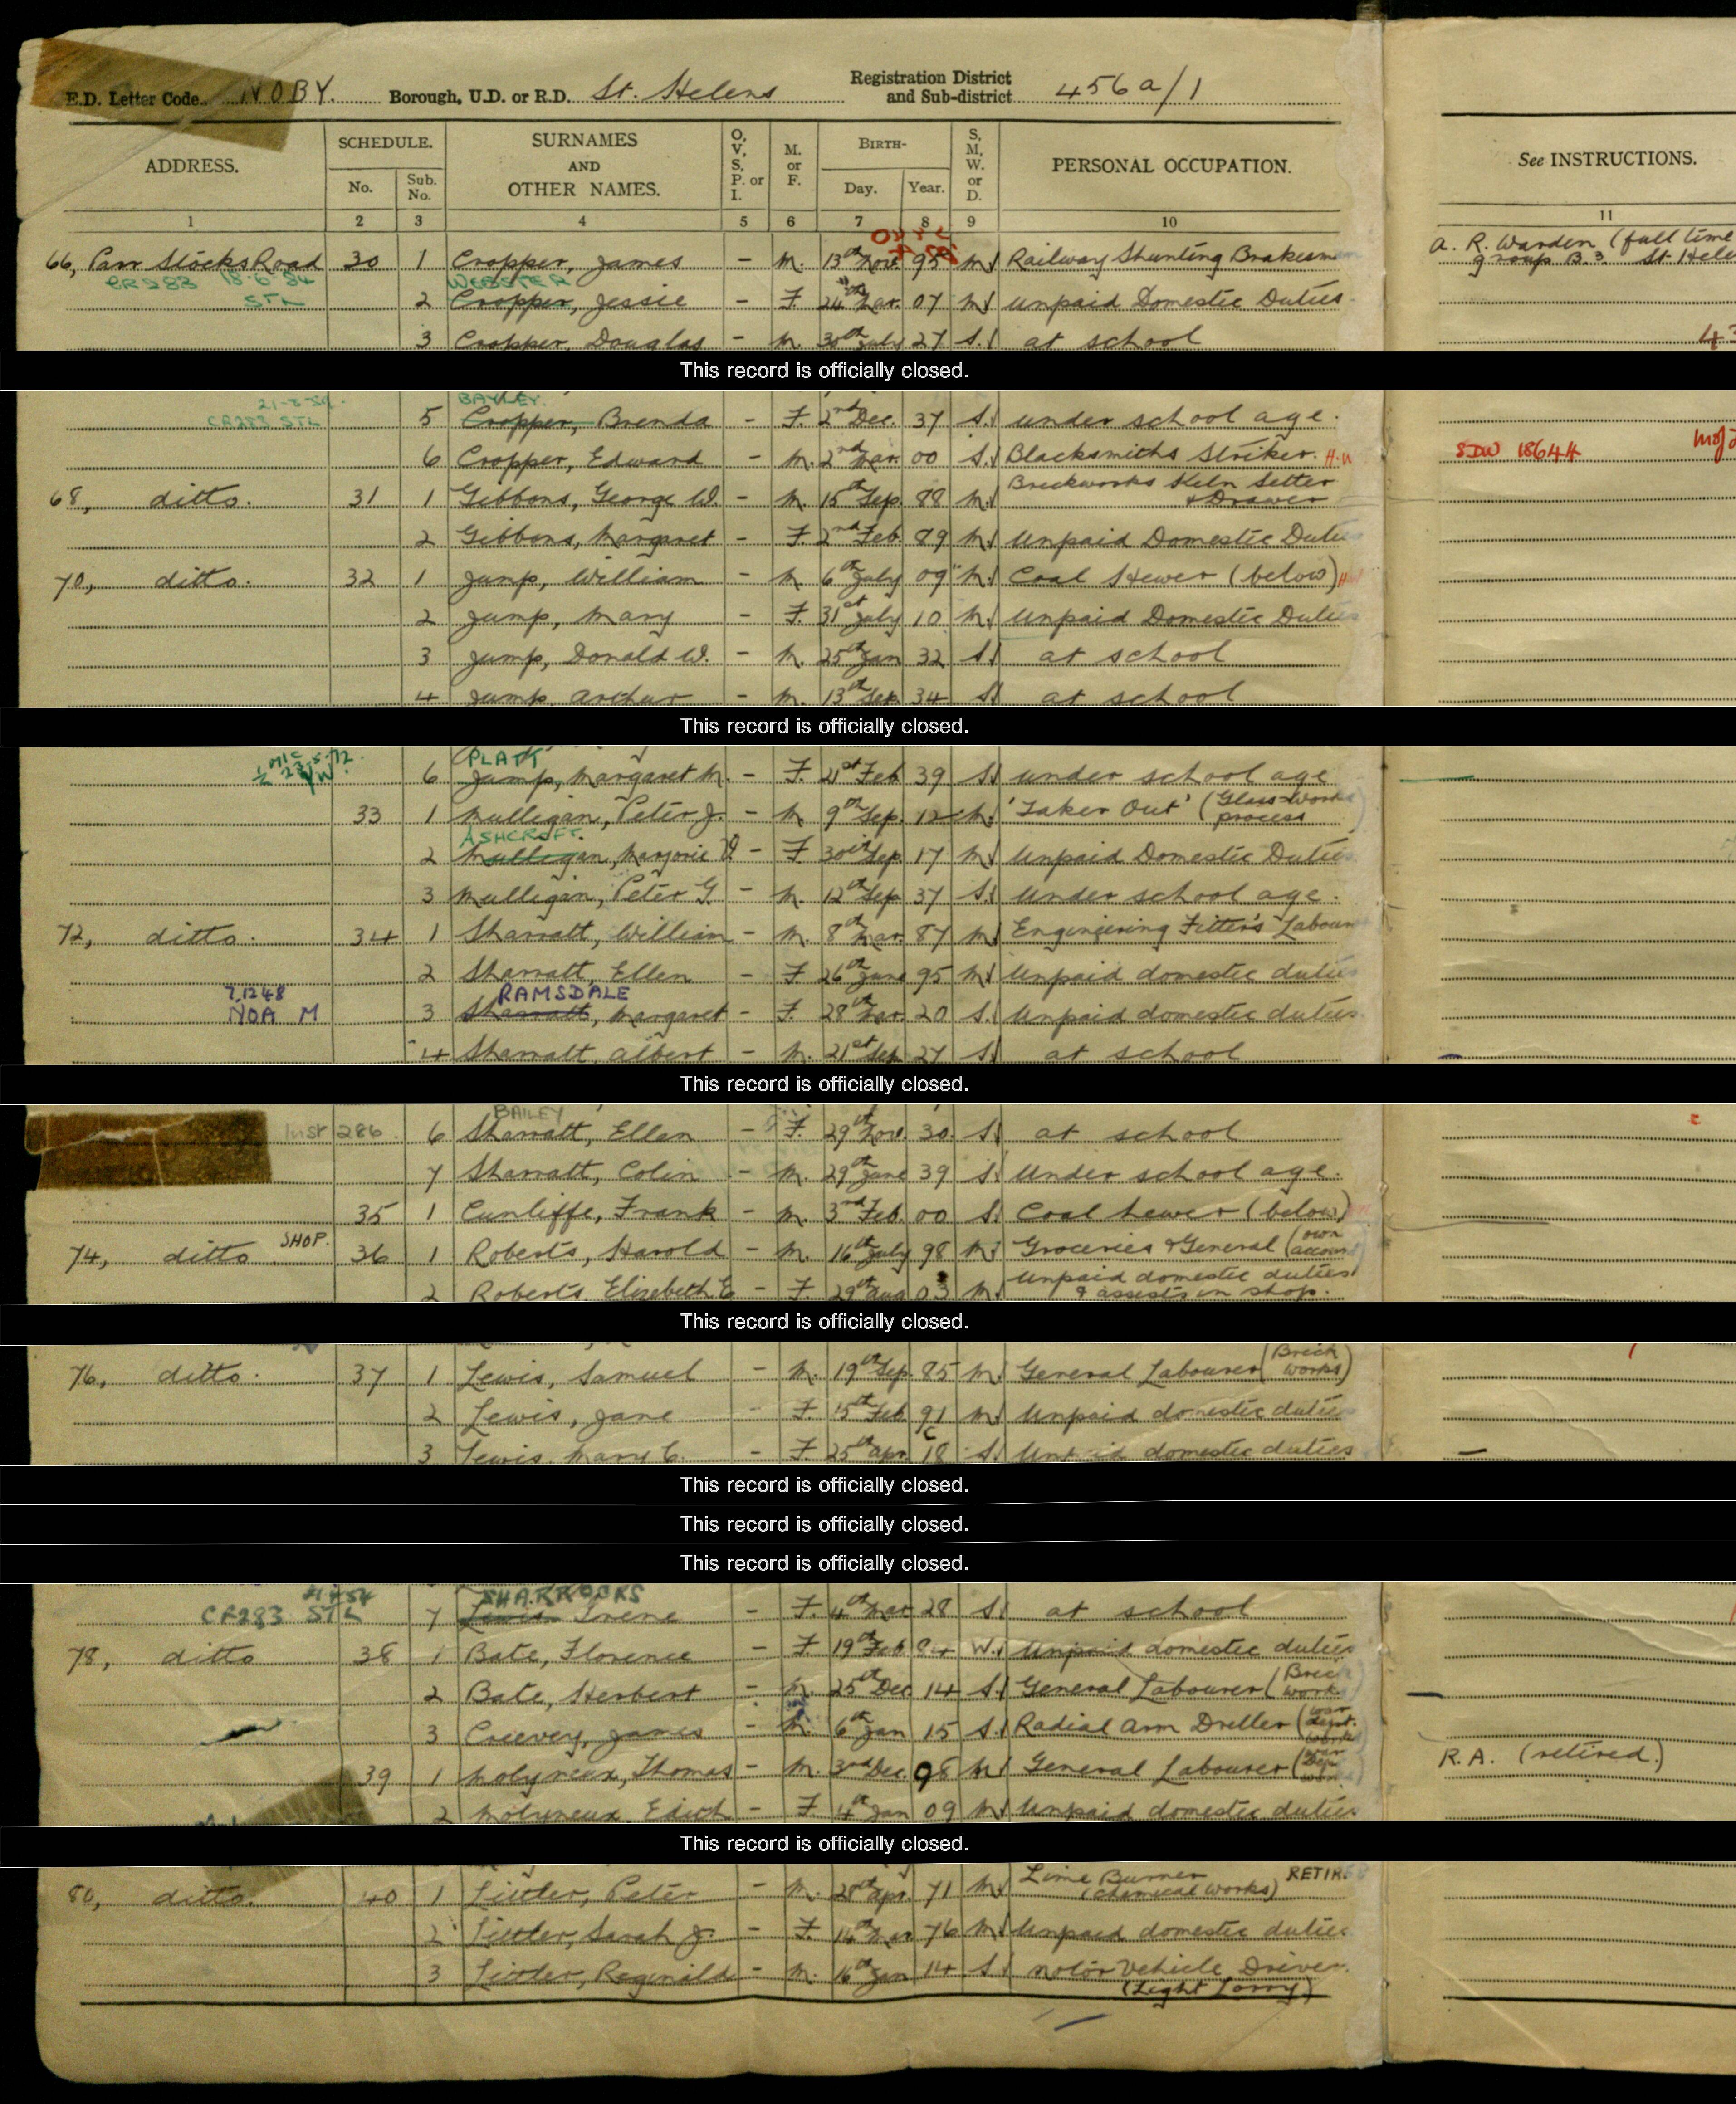 E.D. Letter Code NOBY. Borough, U.D. or R.D. St. Helens Registration District and Sub-district 456a/1
ADDRESS. SCHEDULE. No. Sub. No. SURNAMES AND OTHER NAMES. O, V, S, P. or I. M. or F. BIRTH- Day. Year. S, M, W. or D. PERSONAL OCCUPATION. See INSTRUCTIONS.
1 2 3 4 5 6 7 8 9 10 11
66, Parr Stocks Road 30 1 Cropper, James - M. 13th Nov. 95 M Railway Shunting Brakesman A. R. Warden (full time
group B.3. St. Hele
CR283 18.6.54 WEBSTER
STL 2 Cropper, Jessie - F. 24th Mar. 07 M Unpaid Domestic Duties
3 Cropper, Douglas - M. 30th July 27 S. at school 43
This record is officially closed.
BAYLEY.
CR283 STL 5 Cropper, Brenda - F. 2nd Dec. 37 S. under school age.
6 Cropper, Edward - M. 2nd Mar. 00 S. Blacksmiths Striker. H.W SJW 18644
68, ditto. 31 1 Gibbons, George W. - M. 15th Sep. 88 M. Brickworks Kiln Setter
& Drawer
2 Gibbons, Margaret - F. 2nd Feb. 89 M. Unpaid Domestic Duties
70, ditto. 32 1 Jump, William - M 6th July 09 M. Coal Hewer (below)
2 Jump, Mary - F. 31st July 10 M. Unpaid Domestic Duties
3 Jump, Donald W. - M. 25th Jan 32 S. at school
4 Jump, Arthur - M. 13th Sep. 34 S. at school
This record is officially closed.
PLATT
6 Jump, Margaret M. - F. 21st Feb 39 S. under school age
33 1 Mulligan, Peter J. - M 9th Sep. 12 M. 'Taker Out' (Glass-works
process
ASHCROFT.
2 Mulligan, Marjorie V - F 30th Sep 17 M Unpaid Domestic Duties
3 Mulligan, Peter G - M. 12th Sep 37 S. Under school age.
72, ditto. 34 1 Sharratt, William - M. 8th Mar. 87 M Engineering Fitter's Labour
2 Sharratt, Ellen - F 26th June 95 M Unpaid domestic duties
71248 RAMSDALE
NOA M 3 Sharratt, Margaret - F. 28th Mar. 20 S. Unpaid domestic duties
4 Sharratt, Albert - M. 21st Sep. 27 S. at school
This record is officially closed.
BAILEY
Inst 286 6 Sharratt, Ellen - F. 29th Nov. 30. S. at school
7 Sharratt, Colin - M. 29th June 39 S. Under school age.
35 1 Cunliffe, Frank - M. 3rd Feb. 00 S. Coal hewer (below)
74, ditto SHOP. 36 1 Roberts, Harold - M. 16th July 98 M. Groceries & General (own
account
2 Roberts, Elizabeth E - F 29th Aug 03 M. Unpaid domestic duties
& assists in shop.
This record is officially closed.
76, ditto. 37 1 Lewis, Samuel - M. 19th Sep. 85 M. General Labourer (Brick
works)
2 Lewis, Jane - F. 15th Feb. 91 M. Unpaid domestic duties
3 Lewis, Mary C. - F. 25th Apr. 18 S. Unpaid domestic duties
This record is officially closed.
This record is officially closed.
This record is officially closed.
SHARROCKS
CR283 STL 7 Lewis Irene - F. 4th Mar 28 S. at school
78, ditto 38 1 Bate, Florence - F. 19th Feb 84 W. Unpaid domestic duties
2 Bate, Herbert - M. 25th Dec 14 S. General Labourer (Brick
works
3 Creevey, James - M. 6th Jan 15 S. Radial Arm Driller (war
dept.
works
39 1 Molyneux, Thomas - M. 3rd Dec. 98 M General Labourer R.A. (retired.)
2 Molyneux, Edith - F. 4th Jan 09 M. Unpaid domestic duties
This record is officially closed.
80, ditto. 40 1 Littler, Peter - M. 28th Apr. 71 M. Lime Burner RETIR
(Chemical works)
2 Littler, Sarah J. - F. 14th Mar 76 M. Unpaid domestic duties
3 Littler, Reginald - M. 16th Jan 14 S. Motor Vehicle Driver.
(Light Lorry)